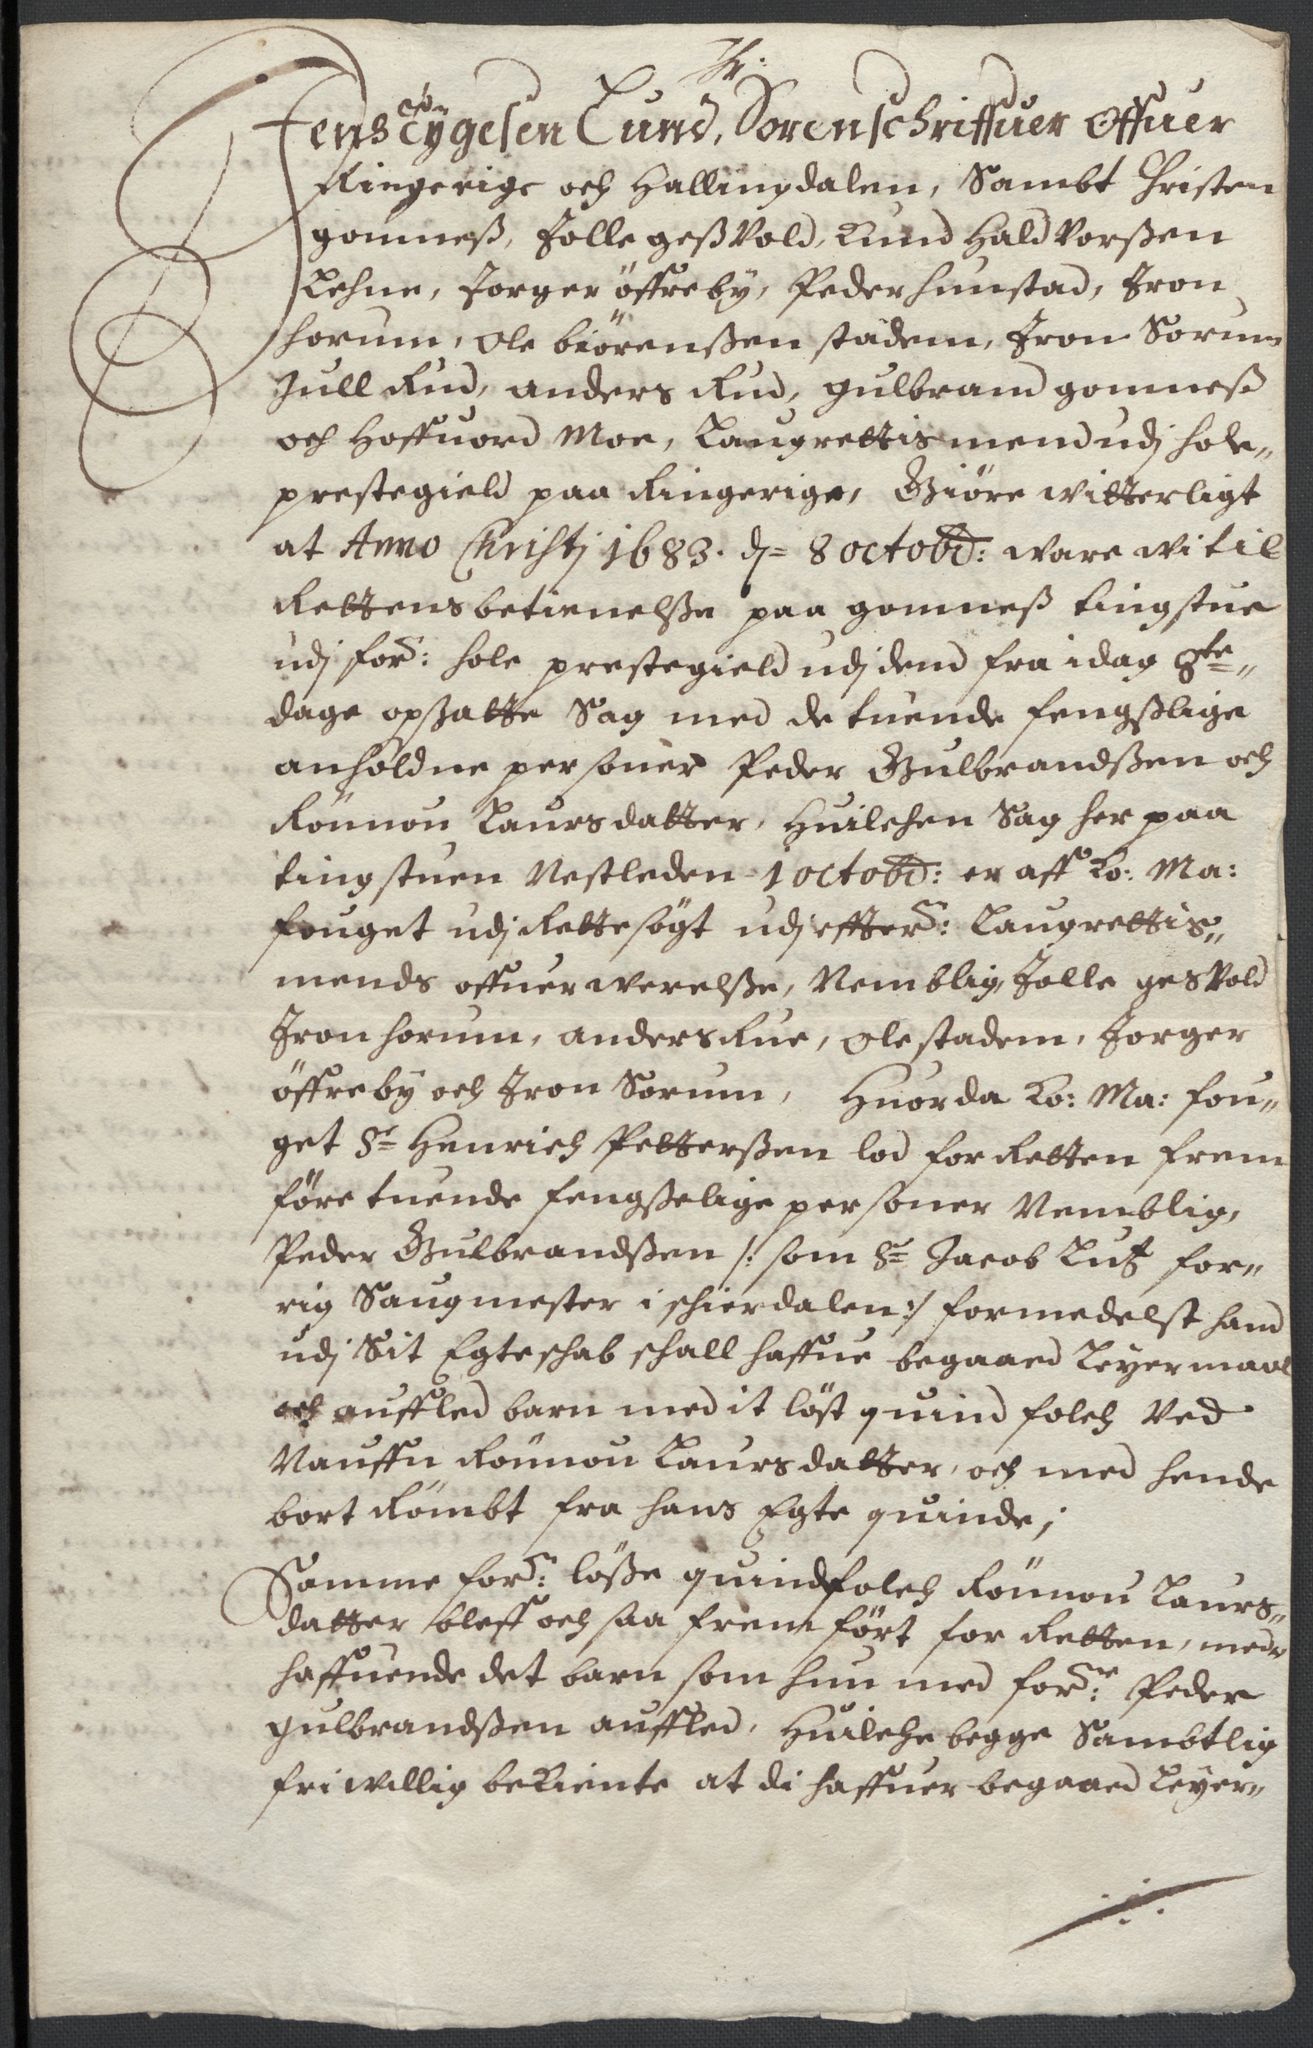 Jens Tygesen Lund, Sorenschriffuer Offuer
Ringerige och Hallingdalen, Sambt Christen
gomneß, Jolle geßVold, Knud HaldVorßen
Lehne, Jorger öffreby, Peder hunstad, Iron
horum, Ole biörenßen stadem, Iron Sorum
Jull Rud, anders Rud, gulbrand gomneß
och Hoffuord Moe, Laugrettis mend udj hole„
prestegield paa Ringerige, Giöre witterligt
at Anno Christj 1683. d= 8 octobr: ware wi til
Rettens betienelße paa gomneß tingstue
udj for: hole prestegield udj dend fra idag 8te„
dage opßatte Sag med de tuende fengßlige
anholdne personer Peder Gulbrandßen och
Rönnou Laursdatter, Huilchen Sag her paa
tingstuen Nestleden 1 octobr: er aff Ko: Ma:
fouget udj Rette sögt udj effter: Laugrettis„
mends offuerwerelße, Nemblig, Jolle gesVold
Iron horum, anders Rue, Ole stadem, Jorger
öffreby och Iron Sorum, Huorda Ko: Ma: fou„
get Sr= Henrich Petterßen lod for Retten frem
före tuende fengßelige personer Nemblig,
Peder Gulbrandßen /: som Sr= Jacob Lutz for„
rig Saugmester i schierdalen :/ formedelst hand
udj Sit Egteschab schall haffue begaaed Leyermaal
och auffled barn med it löst quind folch Ved
Nauffn Rönnou Laursdatter, och med hende
bort Römbt fra hans Egte quinde;
Samme for: löße quindfolch Rönnou Laurs„
datter bleff och saa frem fört for Retten, med„
haffuende det barn som hun med for: Peder
gulbrandßen auffled, Huilche begge Sambtlig
friwillig bekiente at di haffuer begaaed Leyer„